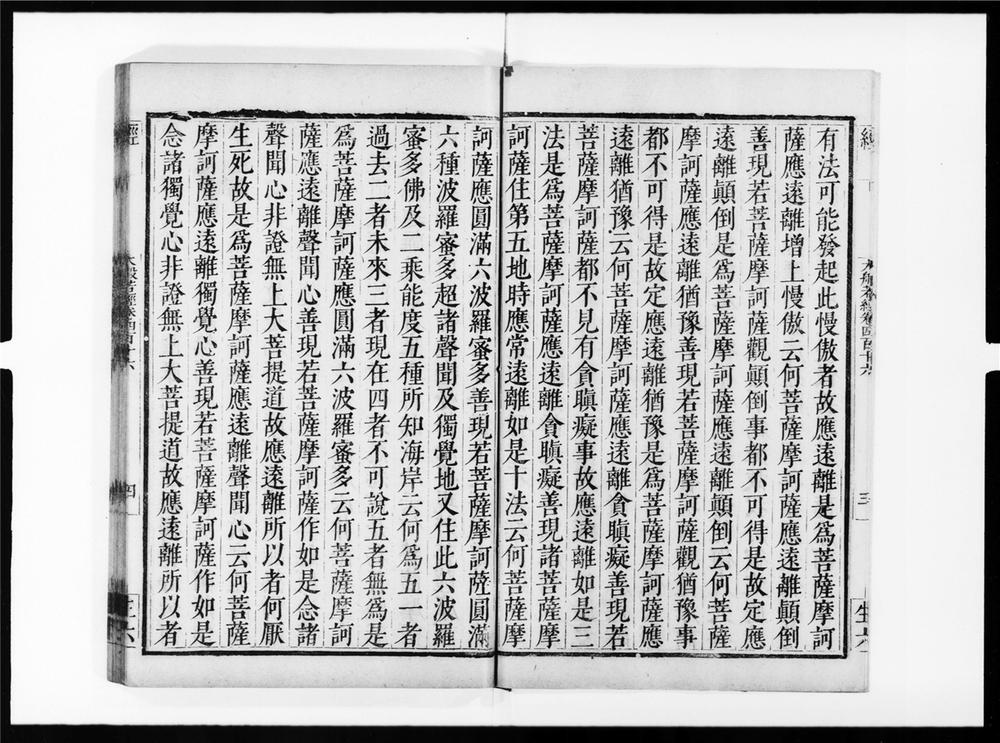 經
大般若經卷四百十六
三
生六
有法可能發起此慢傲者故應遠離是爲菩薩摩訶
薩應遠離增上慢傲云何菩薩摩訶薩應遠離顛倒
善現若菩薩摩訶薩觀顛倒事都不可得是故定應
遠離顛倒是爲菩薩摩訶薩應遠離顛倒云何菩薩
摩訶薩應遠離猶豫善現若菩薩摩訶薩觀猶豫事
都不可得是故定應遠離猶豫是爲菩薩摩訶薩應
遠離猶豫云何菩薩摩訶薩應遠離貪瞋癡善現若
菩薩摩訶薩都不見有貪瞋癡事故應遠離如是三
法是爲菩薩摩訶薩應遠離貪瞋癡善現諸菩薩摩
訶薩住第五地時應常遠離如是十法云何菩薩摩
訶薩應圓滿六波羅蜜多善現若菩薩摩訶薩圓滿
六種波羅蜜多超諸聲聞及獨覺地又住此六波羅
蜜多佛及二乘能度五種所知海岸云何爲五一者
過去二者未來三者現在四者不可說五者無爲是
爲菩薩摩訶薩應圓滿六波羅蜜多云何菩薩摩訶
薩應遠離聲聞心善現若菩薩摩訶薩作如是念諸
聲聞心非證無上大菩提道故應遠離所以者何厭
生死故是爲菩薩摩訶薩應遠離聲聞心云何菩薩
摩訶薩應遠離獨覺心善現若菩薩摩訶薩作如是
念諸獨覺心非證無上大菩提道故應遠離所以者
經
大般若經卷四百十六
四